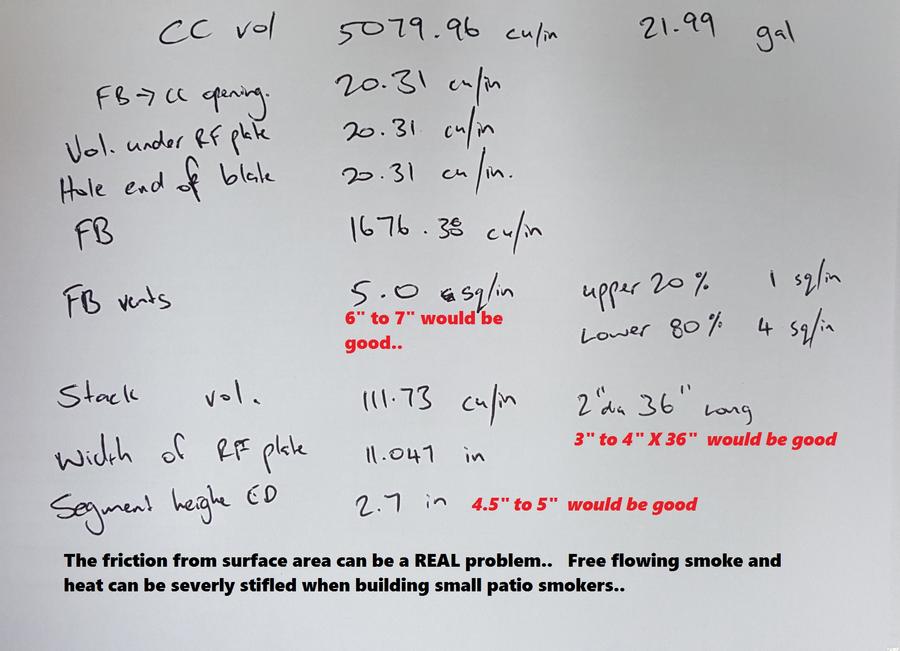 CC vol 5079.96 cu/in 21.99 gal
FB → CC opening. 20.31 cu/in
Vol. under RF plate 20.31 cu/in
Hole end of blate 20.31 cu/in.
FB 1676.38 cu/in
FB vents 5.0 sq/in upper 20% 1 sq/in
6" to 7" would be
good..
Lower 80% 4 sq/in
Stack vol. 111.73 cu/in 2"dia 36" Long
3" to 4" X 36" would be good
Width of RF plate 11.047 in
Segment heighe CD 2.7 in 4.5" to 5" would be good
The friction from surface area can be a REAL problem.. Free flowing smoke and
heat can be severly stifled when building small patio smokers..